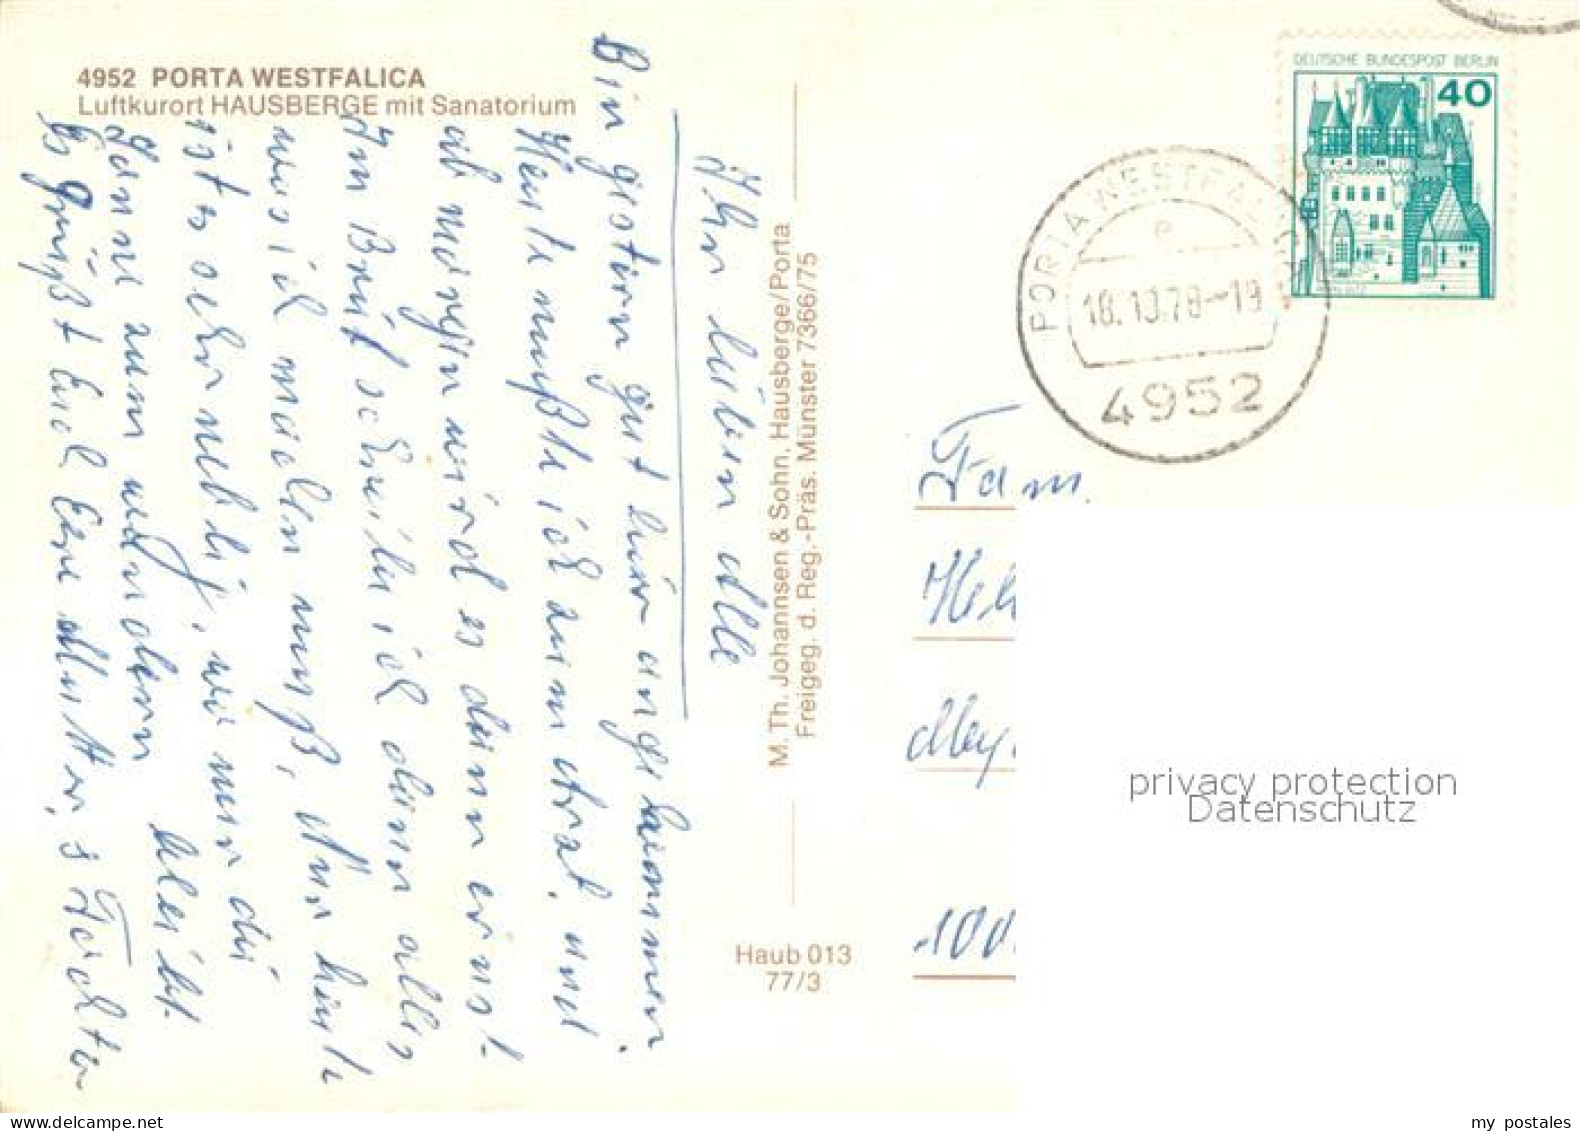 4952 PORTA WESTFALICA
Luftkurort HAUSBERGE mit Sanatorium
Ihr lieben Alle
Bin gestern gut hier angekommen.
Heute mußte ich zum Arzt. und
ab morgen wird es dann ernst.
Im Brief schreibe ich dann alles
was ich machen muß, Nur heute
ist es sehr neblig, wie nur die
Sonne zum
bleibt.
Es grüßt Euch Eure Mutter, s
M. Th. Johannsen & Sohn, Hausberge/Porta
Freigeg. d. Reg.-Präs. Münster 7366/75
Haub 013
77/3
DEUTSCHE BUNDESPOST BERLIN
40
PORTA WESTFALICA
e
18.10.78-19
4952
Fam.
privacy protection
Datenschutz
my postales